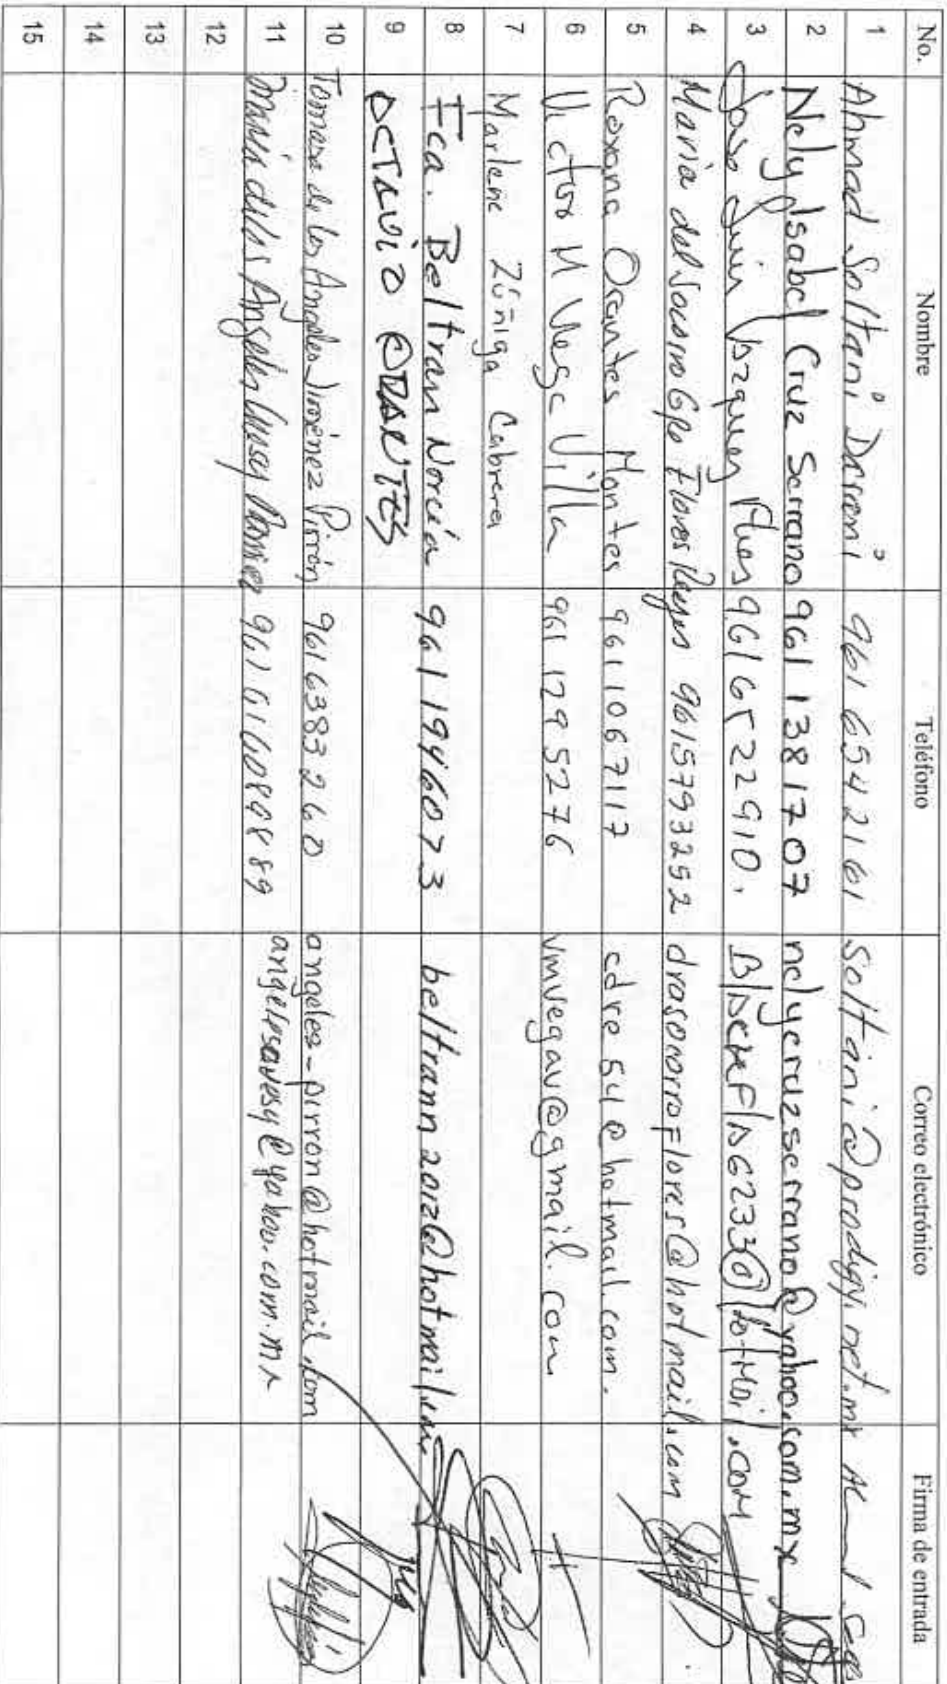 No. Nombre Teléfono Correo electrónico Firma de entrada
1 Ahmad Soltani Darroni 961 654 2161 soltani@prodigy.net.mx
2 Nely Isabel Cruz Serrano 961 138 1707 nelycruzserrano@yahoo.com.mx
3 Jose Luis 961 652 2910.
4 Maria del Socorro Gpe Flores Reyes 9615793252 drasocorroflores@hotmail.com
5 Roxana Orantes Montes 961 106 7117 cdre54@hotmail.com.
6 Victor M Vega Villa 961 129 5276 vmvegav@gmail.com
7 Marlene Zúñiga Cabrera
8 Fca. Beltran Norcéa 961 1946073 beltrann2012@hotmail.com
9 OCTAVIO ORANTES
10 Tomasa de los Angeles Jiménez Pirrón 961 6383260 angeles-pirron@hotmail.com
11 Maria de los Angeles @yahoo.com.mx
12
13
14
15